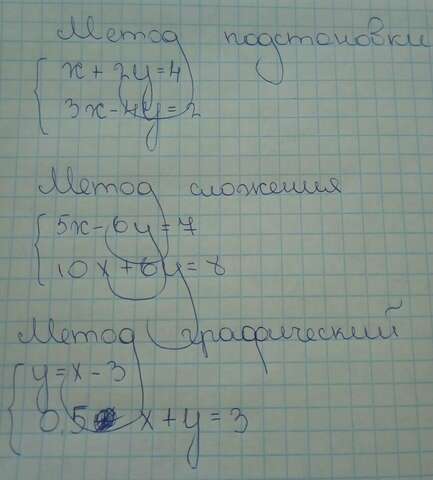 Метод подстановки
x + 2y = 4
3x - 4y = 2
Метод сложения
5x - 6y = 7
10x + 6y = 8
Метод графический
y = x - 3
0,5 x + y = 3